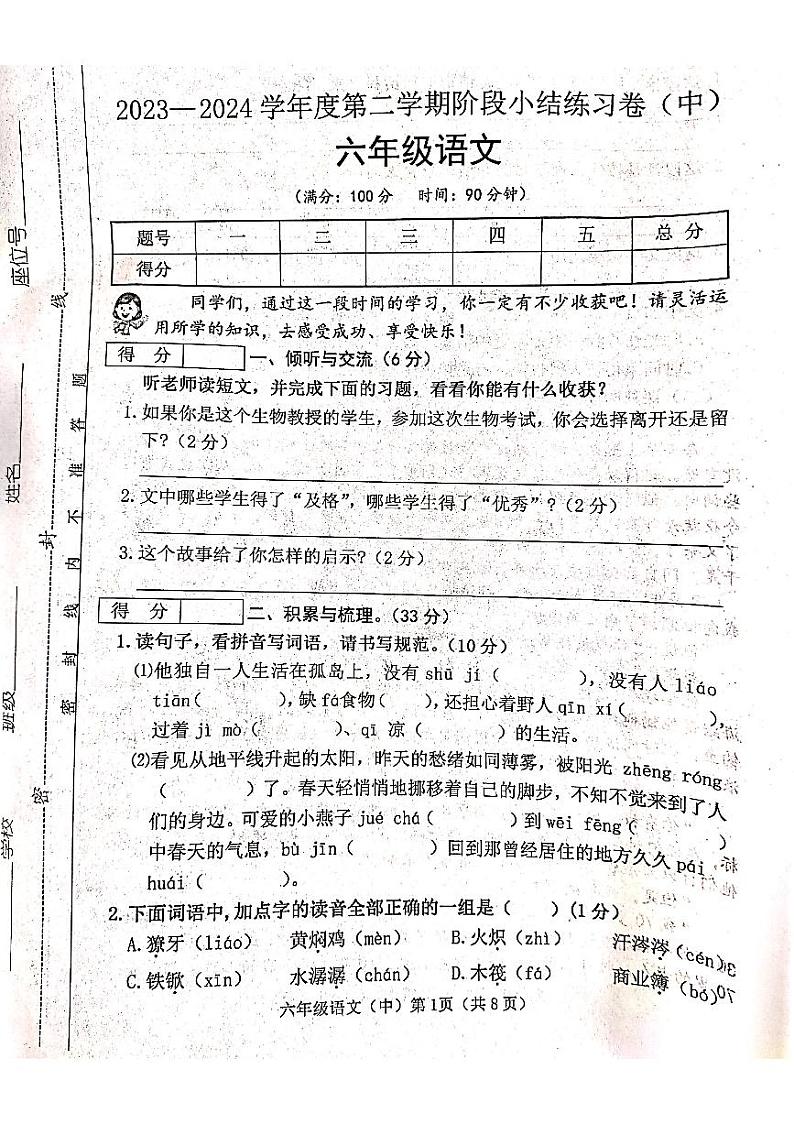 2023—2024 学年度第二学期阶段小结练习卷（中）
六年级语文
（满分：100 分 时间：90 分钟）
题号 一 二 三 四 五 总 分
得分
同学们，通过这一段时间的学习，你一定有不少收获吧！请灵活运
用所学的知识，去感受成功、享受快乐！
得 分 一、倾听与交流（6 分）
听老师读短文，并完成下面的习题，看看你能有什么收获？
1. 如果你是这个生物教授的学生，参加这次生物考试，你会选择离开还是留
下？（2 分）
2. 文中哪些学生得了“及格”，哪些学生得了“优秀”？（2 分）
3. 这个故事给了你怎样的启示？（2 分）
得 分 二、积累与梳理。（33 分）
1. 读句子，看拼音写词语，请书写规范。（10 分）
⑴他独自一人生活在孤岛上，没有 shū jí（ ），没有人 liáo
tiān（ ），缺 fá食物（ ），还担心着野人 qīn xí（ ），
过着 jì mò（ ）、qī 凉（ ）的生活。
⑵看见从地平线升起的太阳，昨天的愁绪如同薄雾，被阳光 zhēng róng
（ ）了。春天轻悄悄地挪移着自己的脚步，不知不觉来到了人
们的身边。可爱的小燕子 jué chá（ ）到 wēi fēng（ ）
中春天的气息，bù jīn（ ）回到那曾经居住的地方久久 pái
huái（ ）。
2. 下面词语中，加点字的读音全部正确的一组是（ ）（1 分）
A. 獠牙（liáo） 黄焖鸡（mèn） B. 火炽（zhì） 汗涔涔（cén）
C. 铁锨（xīn） 水潺潺（chán） D. 木筏（fá） 商业簿（bó）
六年级语文（中）第 1页（共 8 页）
座位号
姓名
班级
学校
密 封 线
密 封 线 内 不 准 答 题